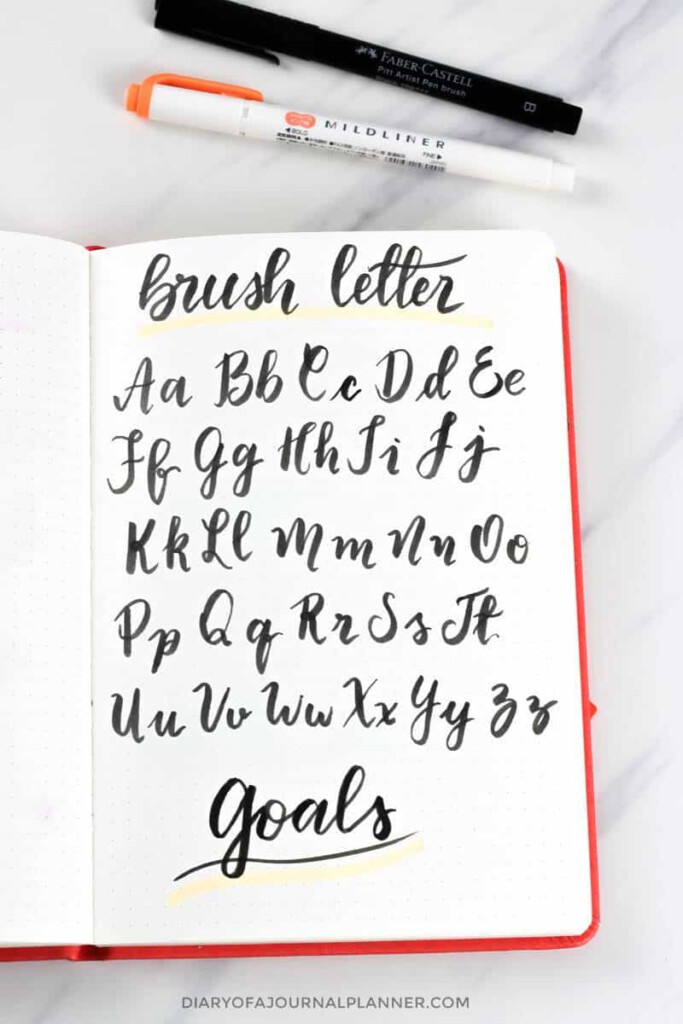 FABER-CASTELL
Pitt Artist Pen brush
B
MILDLINER
BOLD
FINE
brush letter
Aa Bb Cc Dd Ee
Ff Gg Hh Ii Jj
Kk Ll Mm Nn Oo
Pp Qq Rr Ss Tt
Uu Vv Ww Xx Yy Zz
Goals
DIARYOFAJOURNALPLANNER.COM